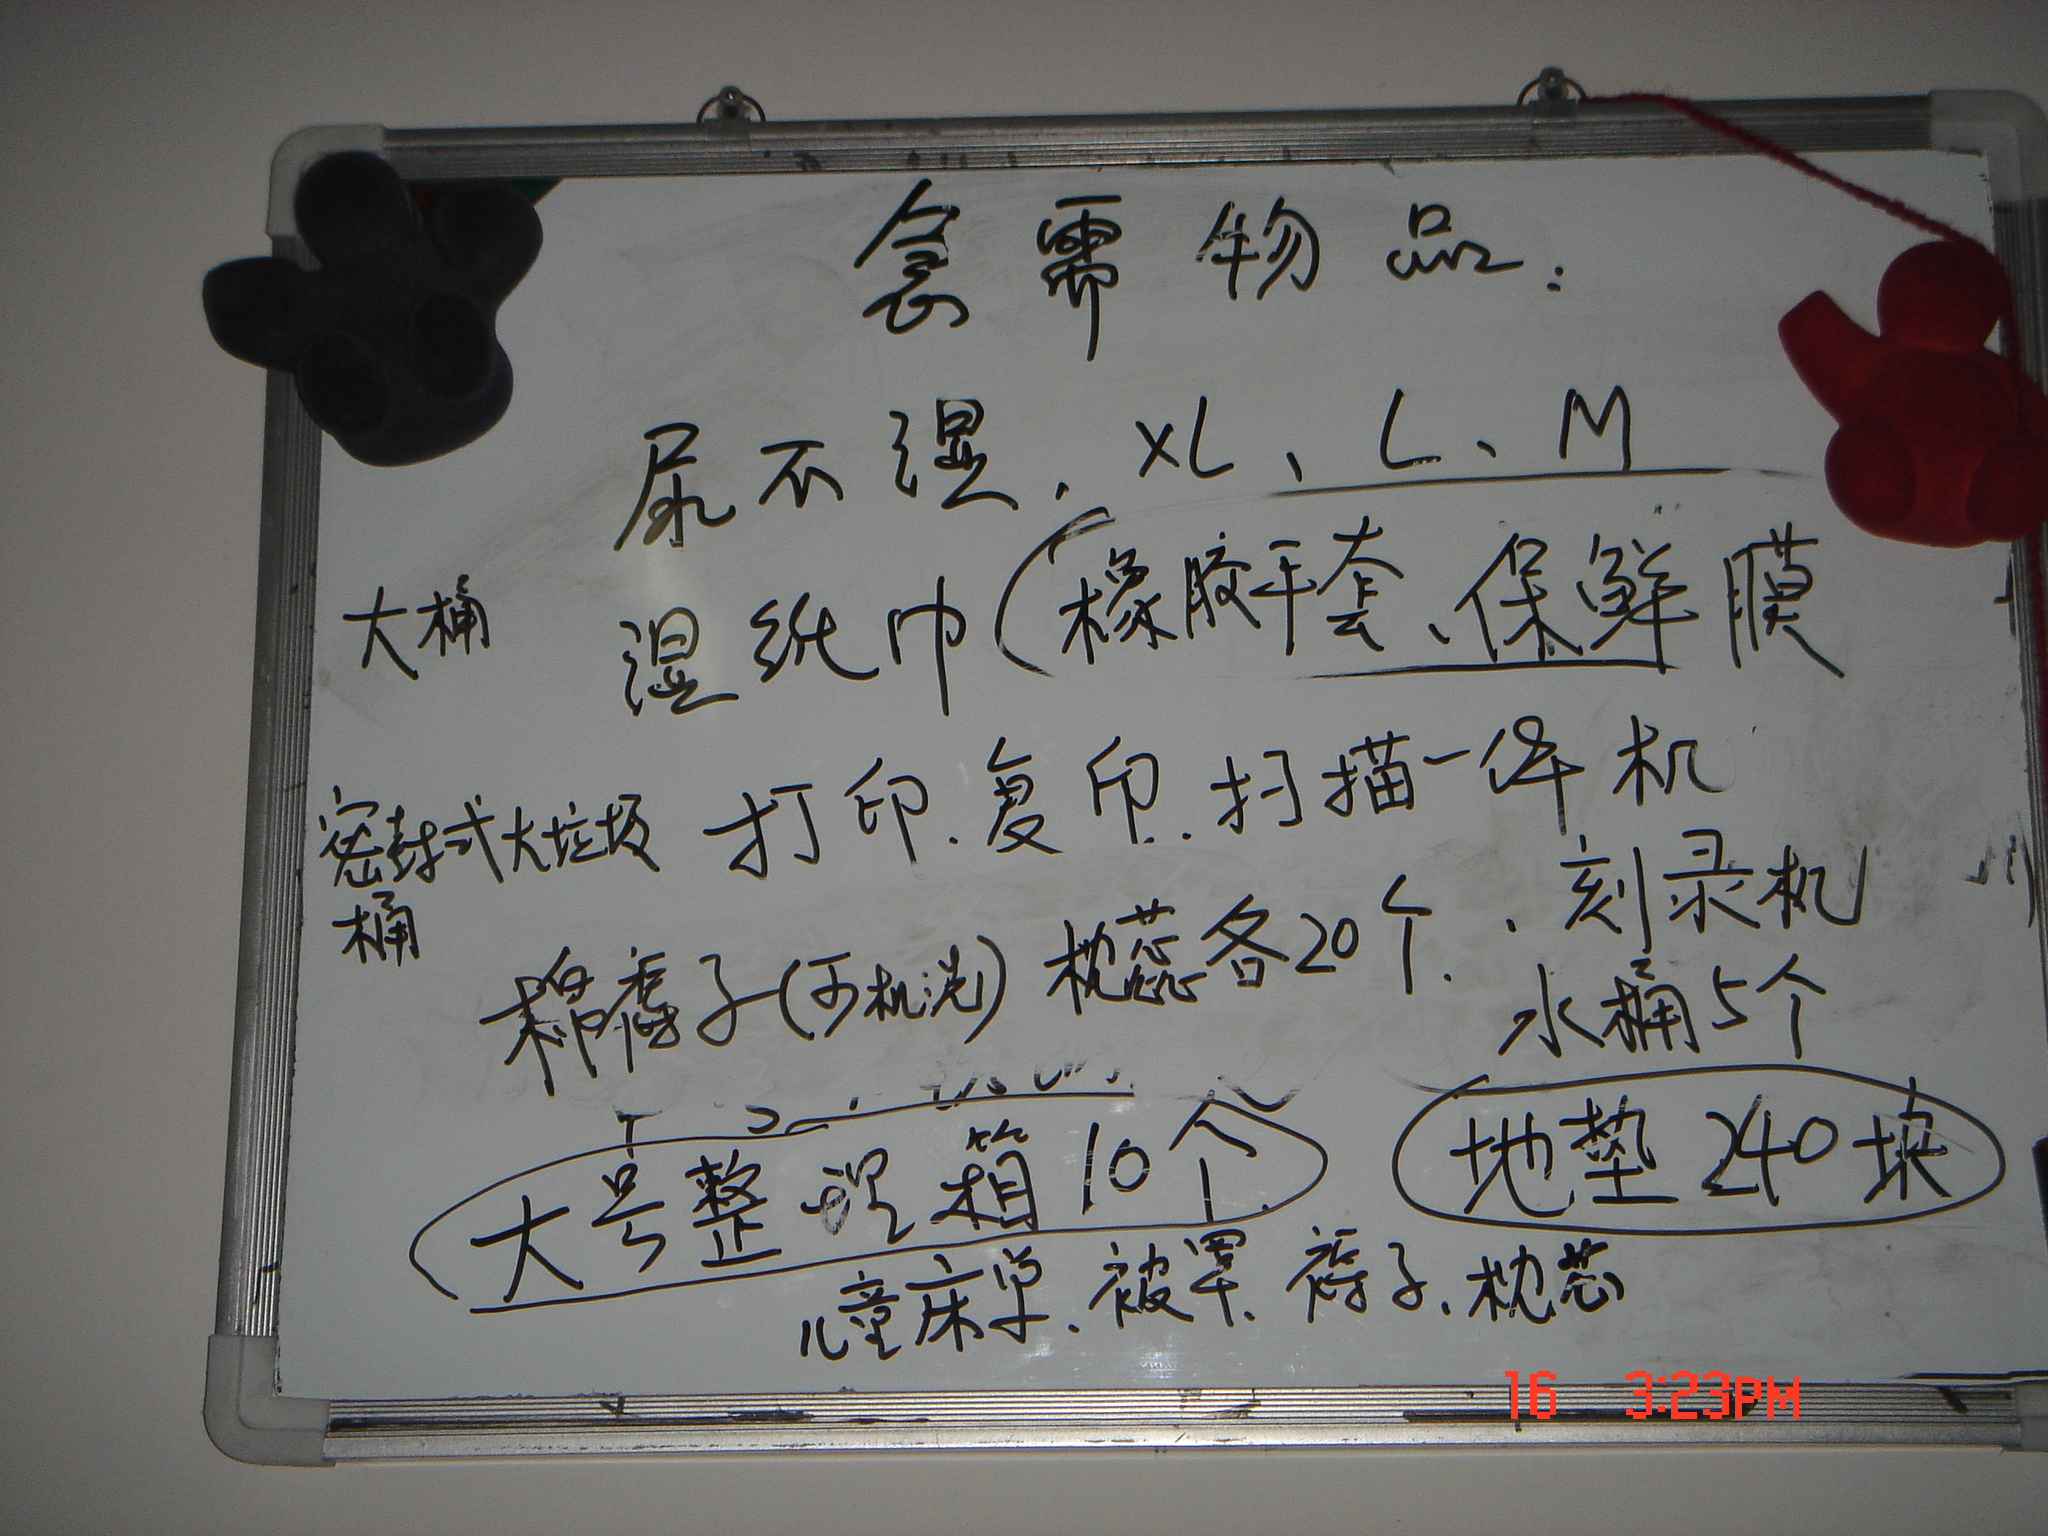 急需物品：
尿不湿、XL、L、M
大桶 湿纸巾(橡胶手套、保鲜膜
密封式大垃圾桶 打印.复印.扫描一体机
、刻录机
棉褥子(可机洗) 枕蕊各20个.
水桶5个
大号整理箱10个. 地垫240块
儿童床单.被罩.褥子.枕芯
16 3:23PM